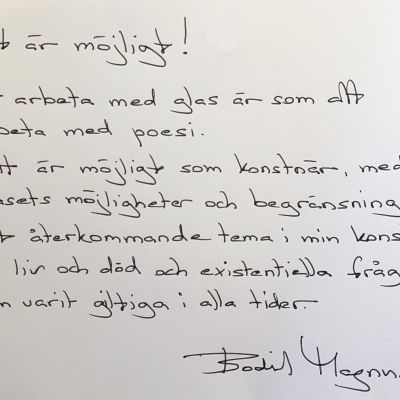 t är möjligt!
t arbeta med glas är som att
beta med poesi.
tt är möjligt som konstnär, med
asets möjligheter och begränsning
t återkommande tema i min kons
liv och död och existentiella fråg
n varit giltiga i alla tider.
Bodil Magnu